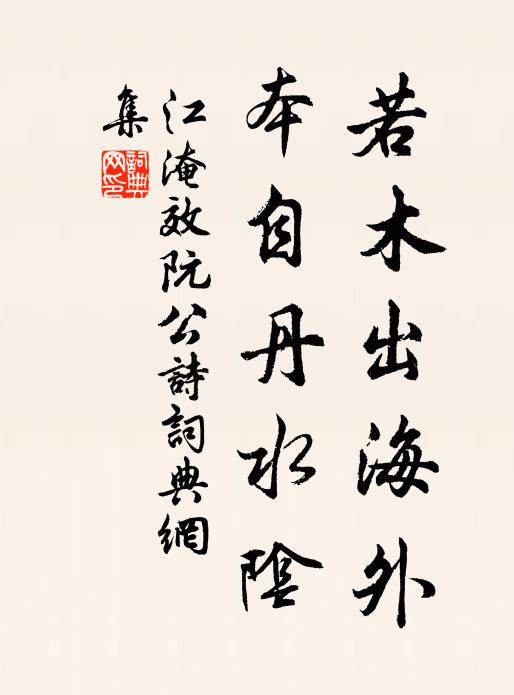 若木出海外
本自丹水陰
江淹效阮公詩詞典網
集
詞典網印